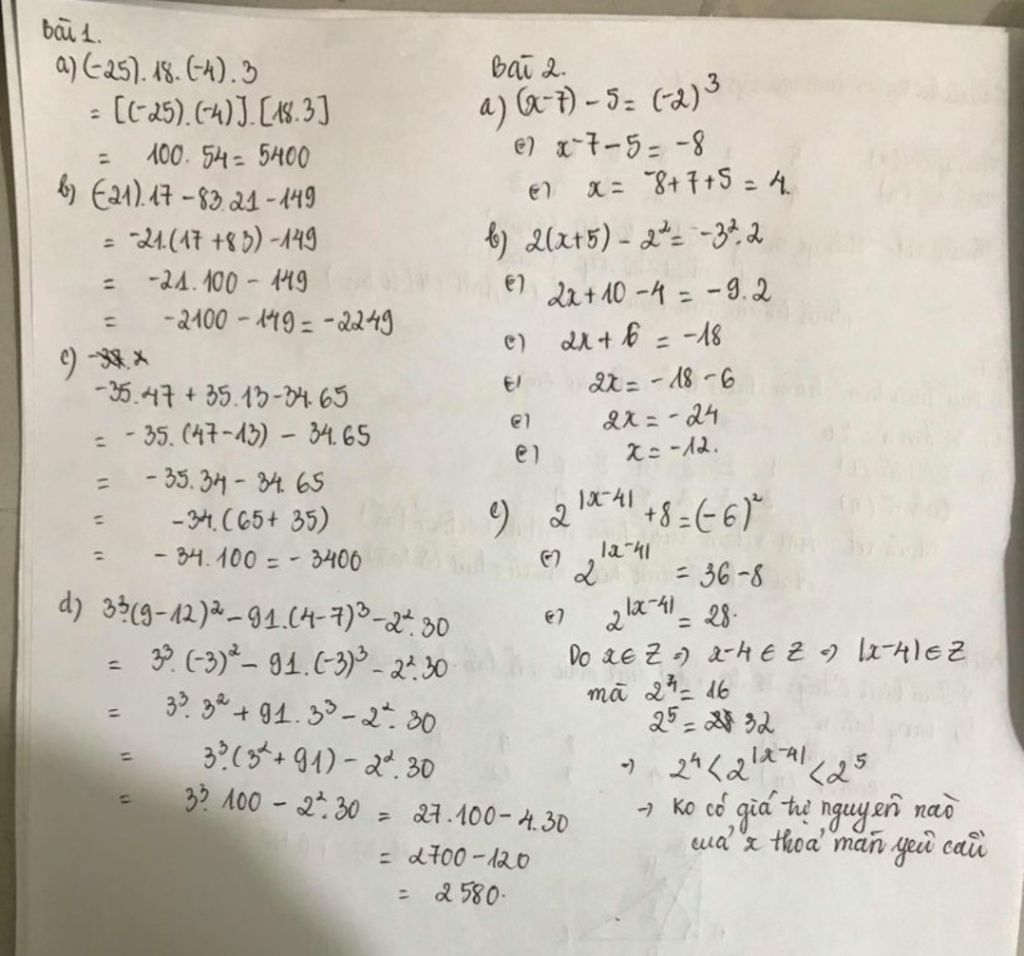 Bài 1.
a) (-25).18.(-4).3
= [(-25).(-4)].[18.3]
= 100.54 = 5400
b) (-21).17 - 83.21 - 149
= -21.(17+83) - 149
= -21.100 - 149
= -2100 - 149 = -2249
c)
-35.47 + 35.13 - 34.65
= -35.(47-13) - 34.65
= -35.34 - 34.65
= -34.(65+35)
= -34.100 = -3400
d) 3³.(9-12)² - 91.(4-7)³ - 2².30
= 3³.(-3)² - 91.(-3)³ - 2².30
= 3³.3² + 91.3³ - 2².30
= 3³.(3²+91) - 2².30
= 3³.100 - 2².30 = 27.100 - 4.30
= 2700 - 120
= 2580.
Bài 2.
a) (x-7) - 5 = (-2)³
⇔ x-7-5 = -8
⇔ x = -8+7+5 = 4.
b) 2(x+5) - 2² = -3².2
⇔ 2x+10-4 = -9.2
⇔ 2x+6 = -18
⇔ 2x = -18-6
⇔ 2x = -24
⇔ x = -12.
c) 2^|x-4| + 8 = (-6)²
⇔ 2^|x-4| = 36-8
⇔ 2^|x-4| = 28.
Do x∈Z ⇒ x-4∈Z ⇒ |x-4|∈Z
mà 2⁴ = 16
2⁵ = 32
→ 2⁴ < 2^|x-4| < 2⁵
→ Ko có giá trị nguyên nào
của x thoả mãn yêu cầu